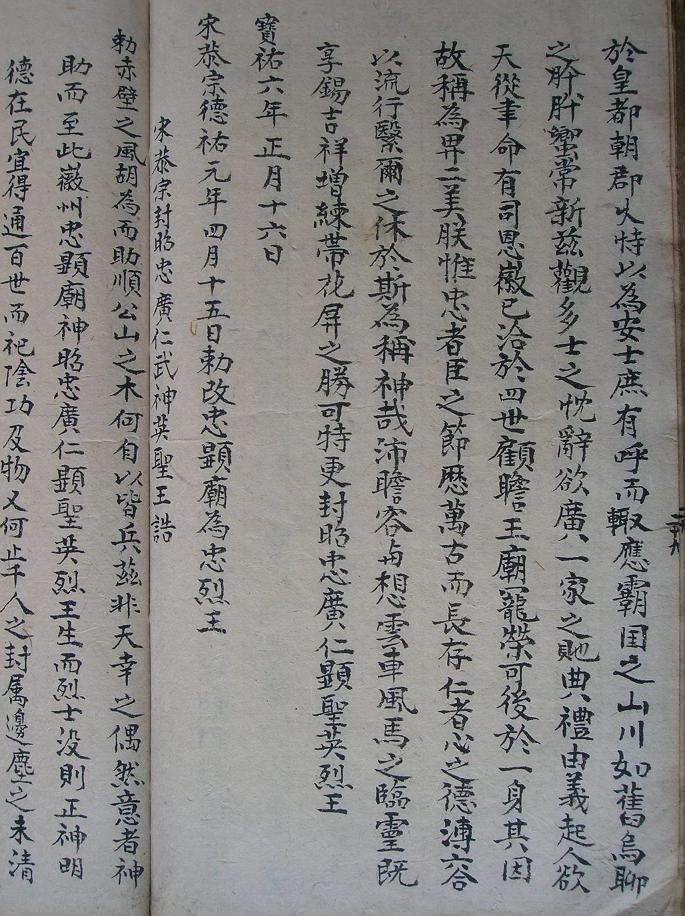 於皇都朝郡火特以為安士庶有呼而輙應霸国之山川如舊烏聊
之肸肸蠁常新兹觀多士之忱辭欲廣一家之貤典禮由義起人欲
天從聿命有司恩徽已洽於四世顧瞻王廟寵榮可後於一身其因
故稱為畀二美朕惟忠者臣之節歷萬古而長存仁者心之德溥六合
以流行繄爾之休於斯為稱神哉沛瞻容與想雲車風馬之臨靈既
享錫吉祥增練帶花屏之勝可特更封昭忠廣仁顯聖英烈王
寶祐六年正月十六日
宋恭宗德祐元年四月十五日勅改忠顯廟為忠烈王
宋恭宗封昭忠廣仁武神英聖王誥
勅赤壁之風胡為而助順公山之木何自以皆兵茲非天幸之偶然意者神
助而至此徽州忠顯廟神昭忠廣仁顯聖英烈王生而烈士没則正神明
德在民宜得通百世而祀陰功及物又何止千人之封属邊塵之未清